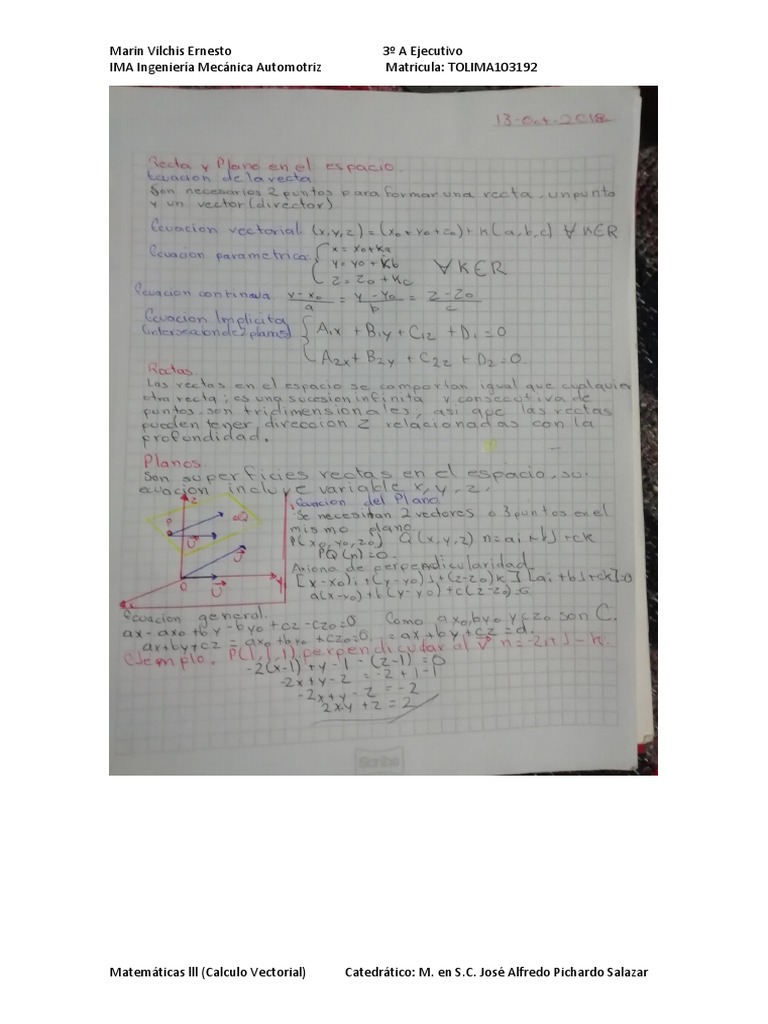 Marin Vilchis Ernesto 3º A Ejecutivo
IMA Ingeniería Mecánica Automotriz Matricula: TOLIMA103192
13-Oct-2018
Recta y Plano en el espacio.
Ecuacion de la recta
Son necesarios 2 puntos para formar una recta, un punto
y un vector (director)
Ecuacion vectorial (x,y,z) = (x₀+y₀+c₀)+k(a,b,c) ∀ K∈R
Ecuacion parametrica: { x = x₀+ka
y = y₀ + kb ∀ K∈R
z = z₀ + kc
Ecuacion continua = y-y₀/b = z-z₀/c
Ecuacion Implicita
(interseccion de 2 planos) { A₁x + B₁y + C₁z + D₁ = 0
A₂x + B₂y + C₂z + D₂ = 0.
Rectas.
Las rectas en el espacio se comportan igual que cualquier
otra recta; es una sucesion infinita y consecutiva de
puntos, son tridimensionales, asi que las rectas
pueden tener direccion z relacionadas con la
profundidad.
Planos.
Son superficies rectas en el espacio, su
ecuacion incluye variable x, y, z.
Ecuacion del Plano
Se necesitan 2 vectores o 3 puntos en el
mismo plano
P(x₀,y₀,z₀) Q(x,y,z) n=ai+bj+ck
PQ(n)=0.
Axioma de perpendicularidad
[x-x₀)i+(y-y₀)j+(z-z₀)k][ai+bj+ck]=0
z
P
Q
U
U
O
U
y
Ecuacion general.
ax-ax₀+by-by₀+cz-cz₀=0 Como ax₀,by₀ y cz₀ son C.
ax+by+cz = ax₀+by₀+cz₀=0. =ax+by+cz=d.
Ejemplo. P(1,1,1) perpendicular al v n=-2i+j-k.
-2(x-1)+y-1-(z-1)=0
-2x+y-z = -2+1-1
-2x+y-z=-2
2x-y+z=2
Scribe
Matemáticas lll (Calculo Vectorial) Catedrático: M. en S.C. José Alfredo Pichardo Salazar